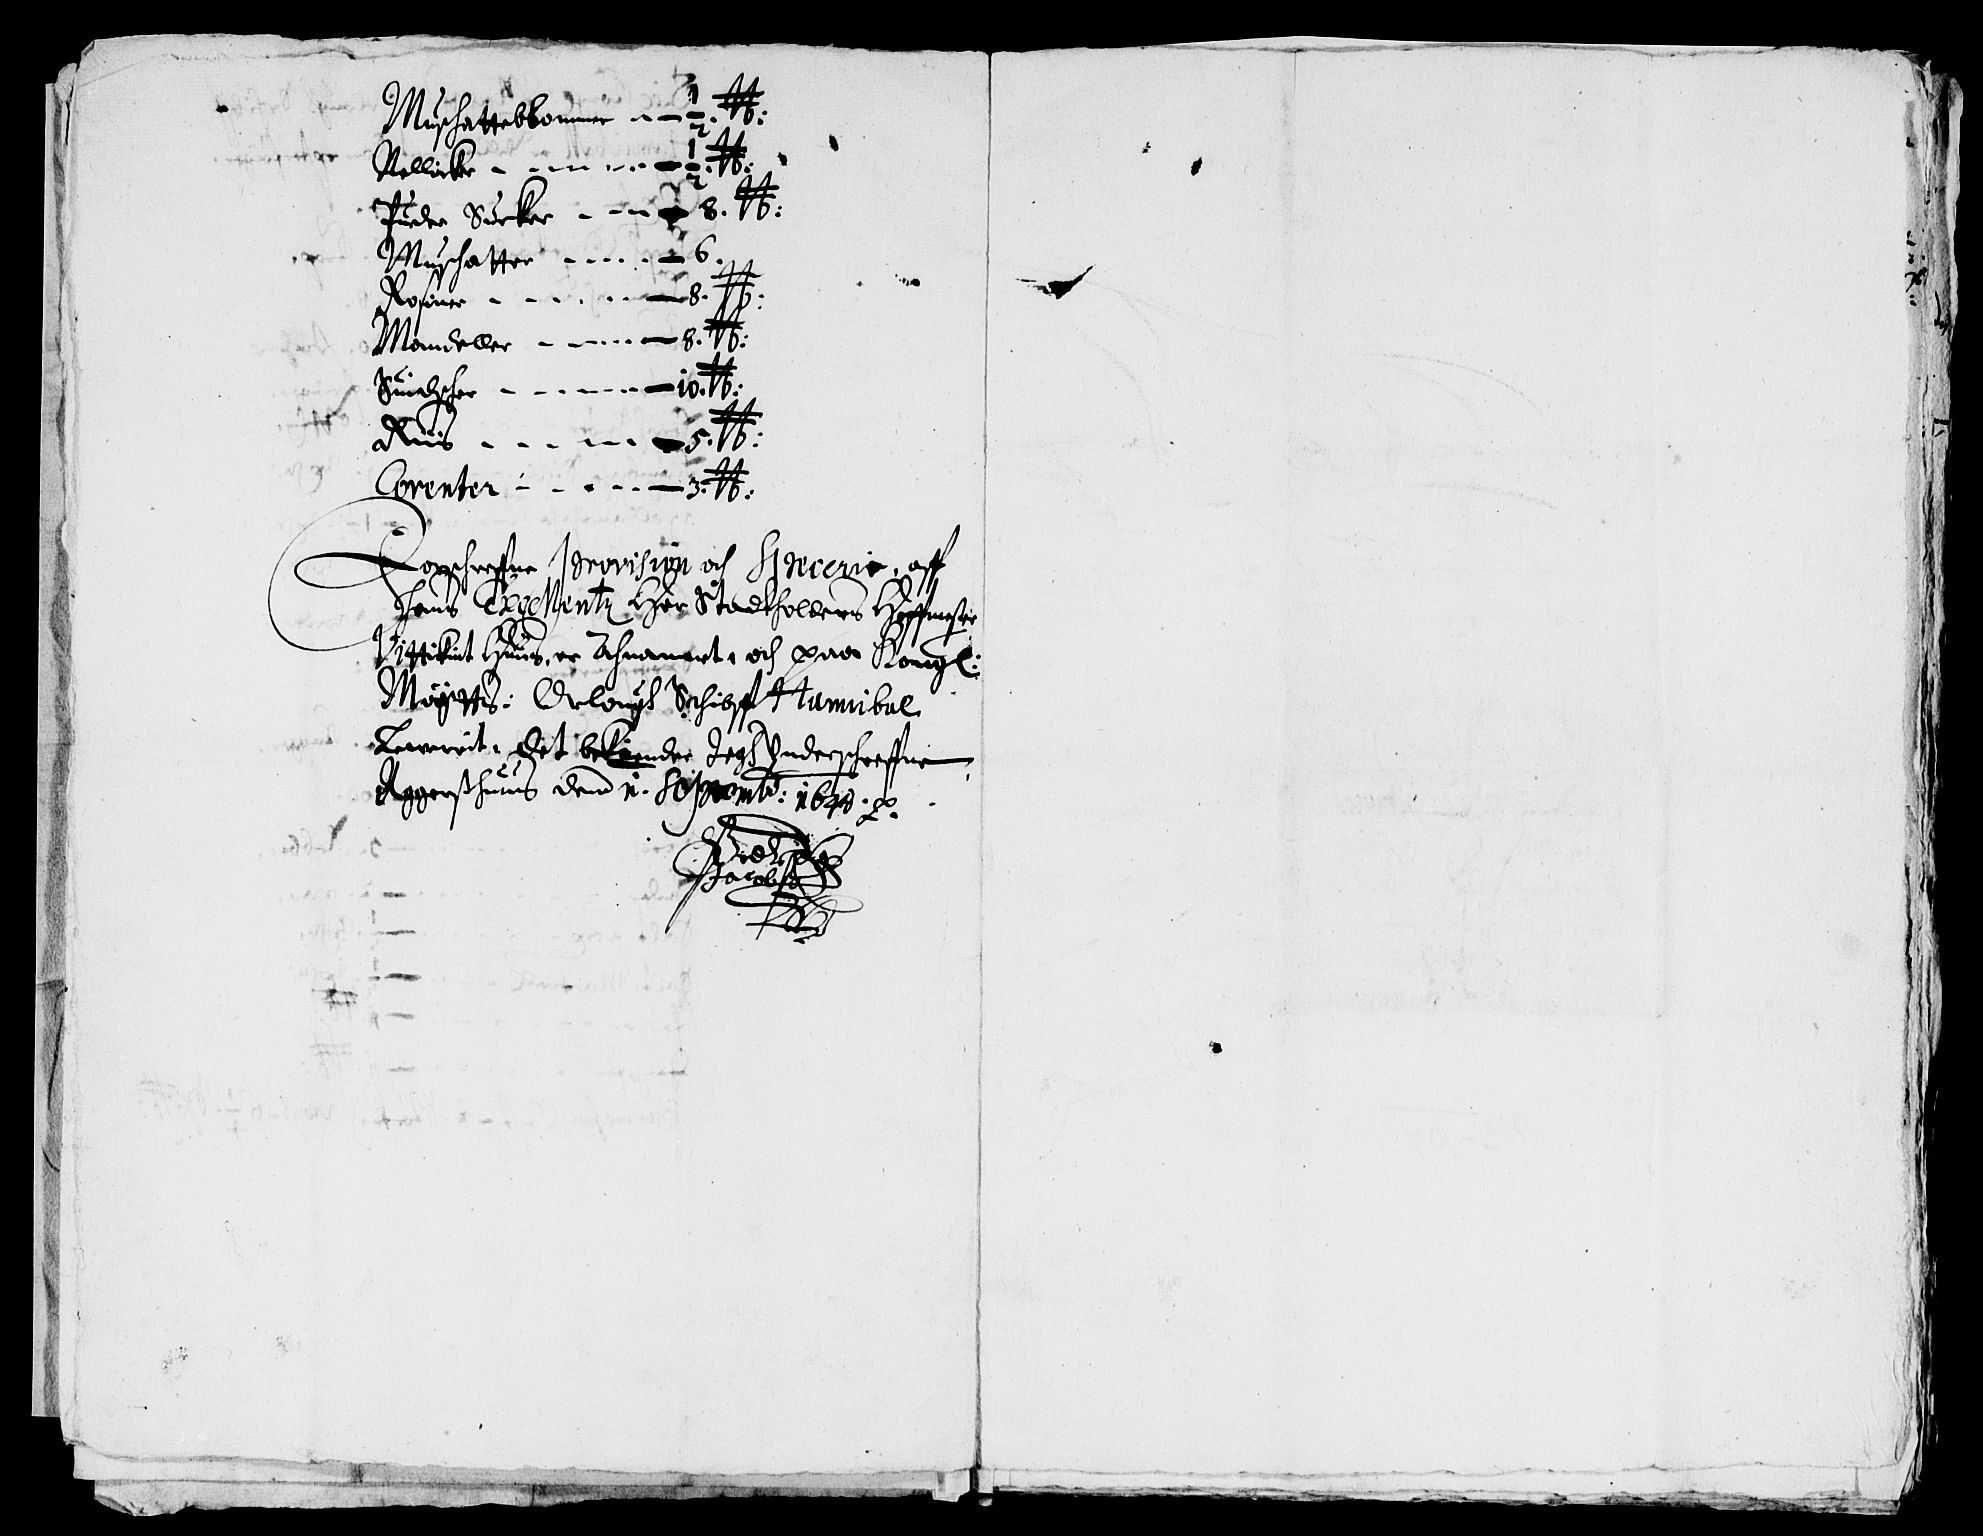 Muschatteblommer - - ½. ℔:
Nellicker - - - - - - - ½. ℔:
Puder Sucker - - - - 8. ℔:
Muschatter - - - - - - 6.
Rosiner - - - - - - 8. ℔:
Mandeller - - - - - 8. ℔:
Suedscher - - - - - - 10. ℔:
Riis - - - - - - 5. ℔:
Corenter - - - - - 3. ℔:
Forschreffne Provision och Specerie, aff
Hans Excellentz Her Stadtholders Hoffmester
Vittikint Huus, er Annammet, och paa Kongl:
Mayetts: Orlougs Schiff Hannibal
Leverit, det bekiender Jegh Underschreffne
Aggerszhuus den 11. Septemb: 1648.
Jacobs